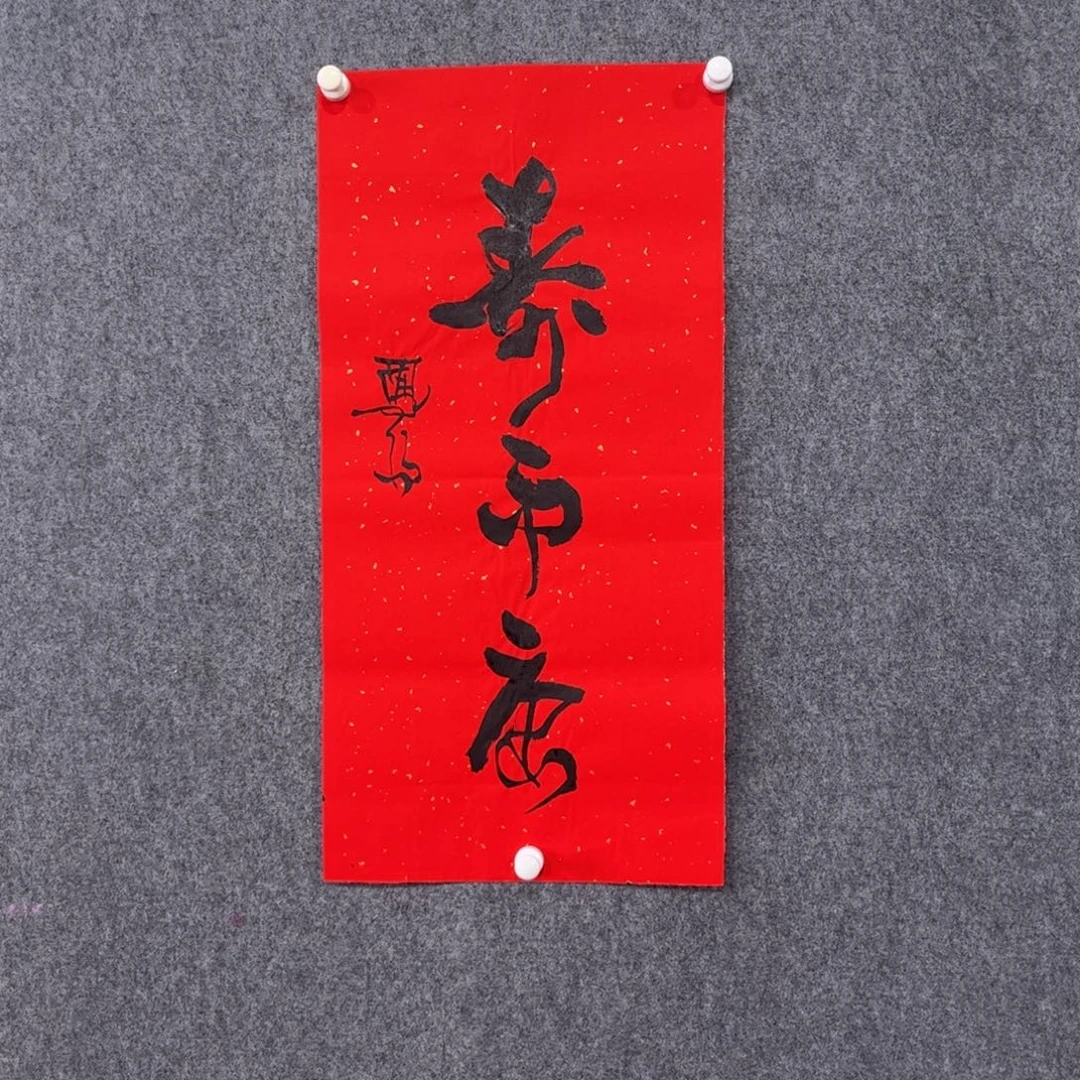 寿而康